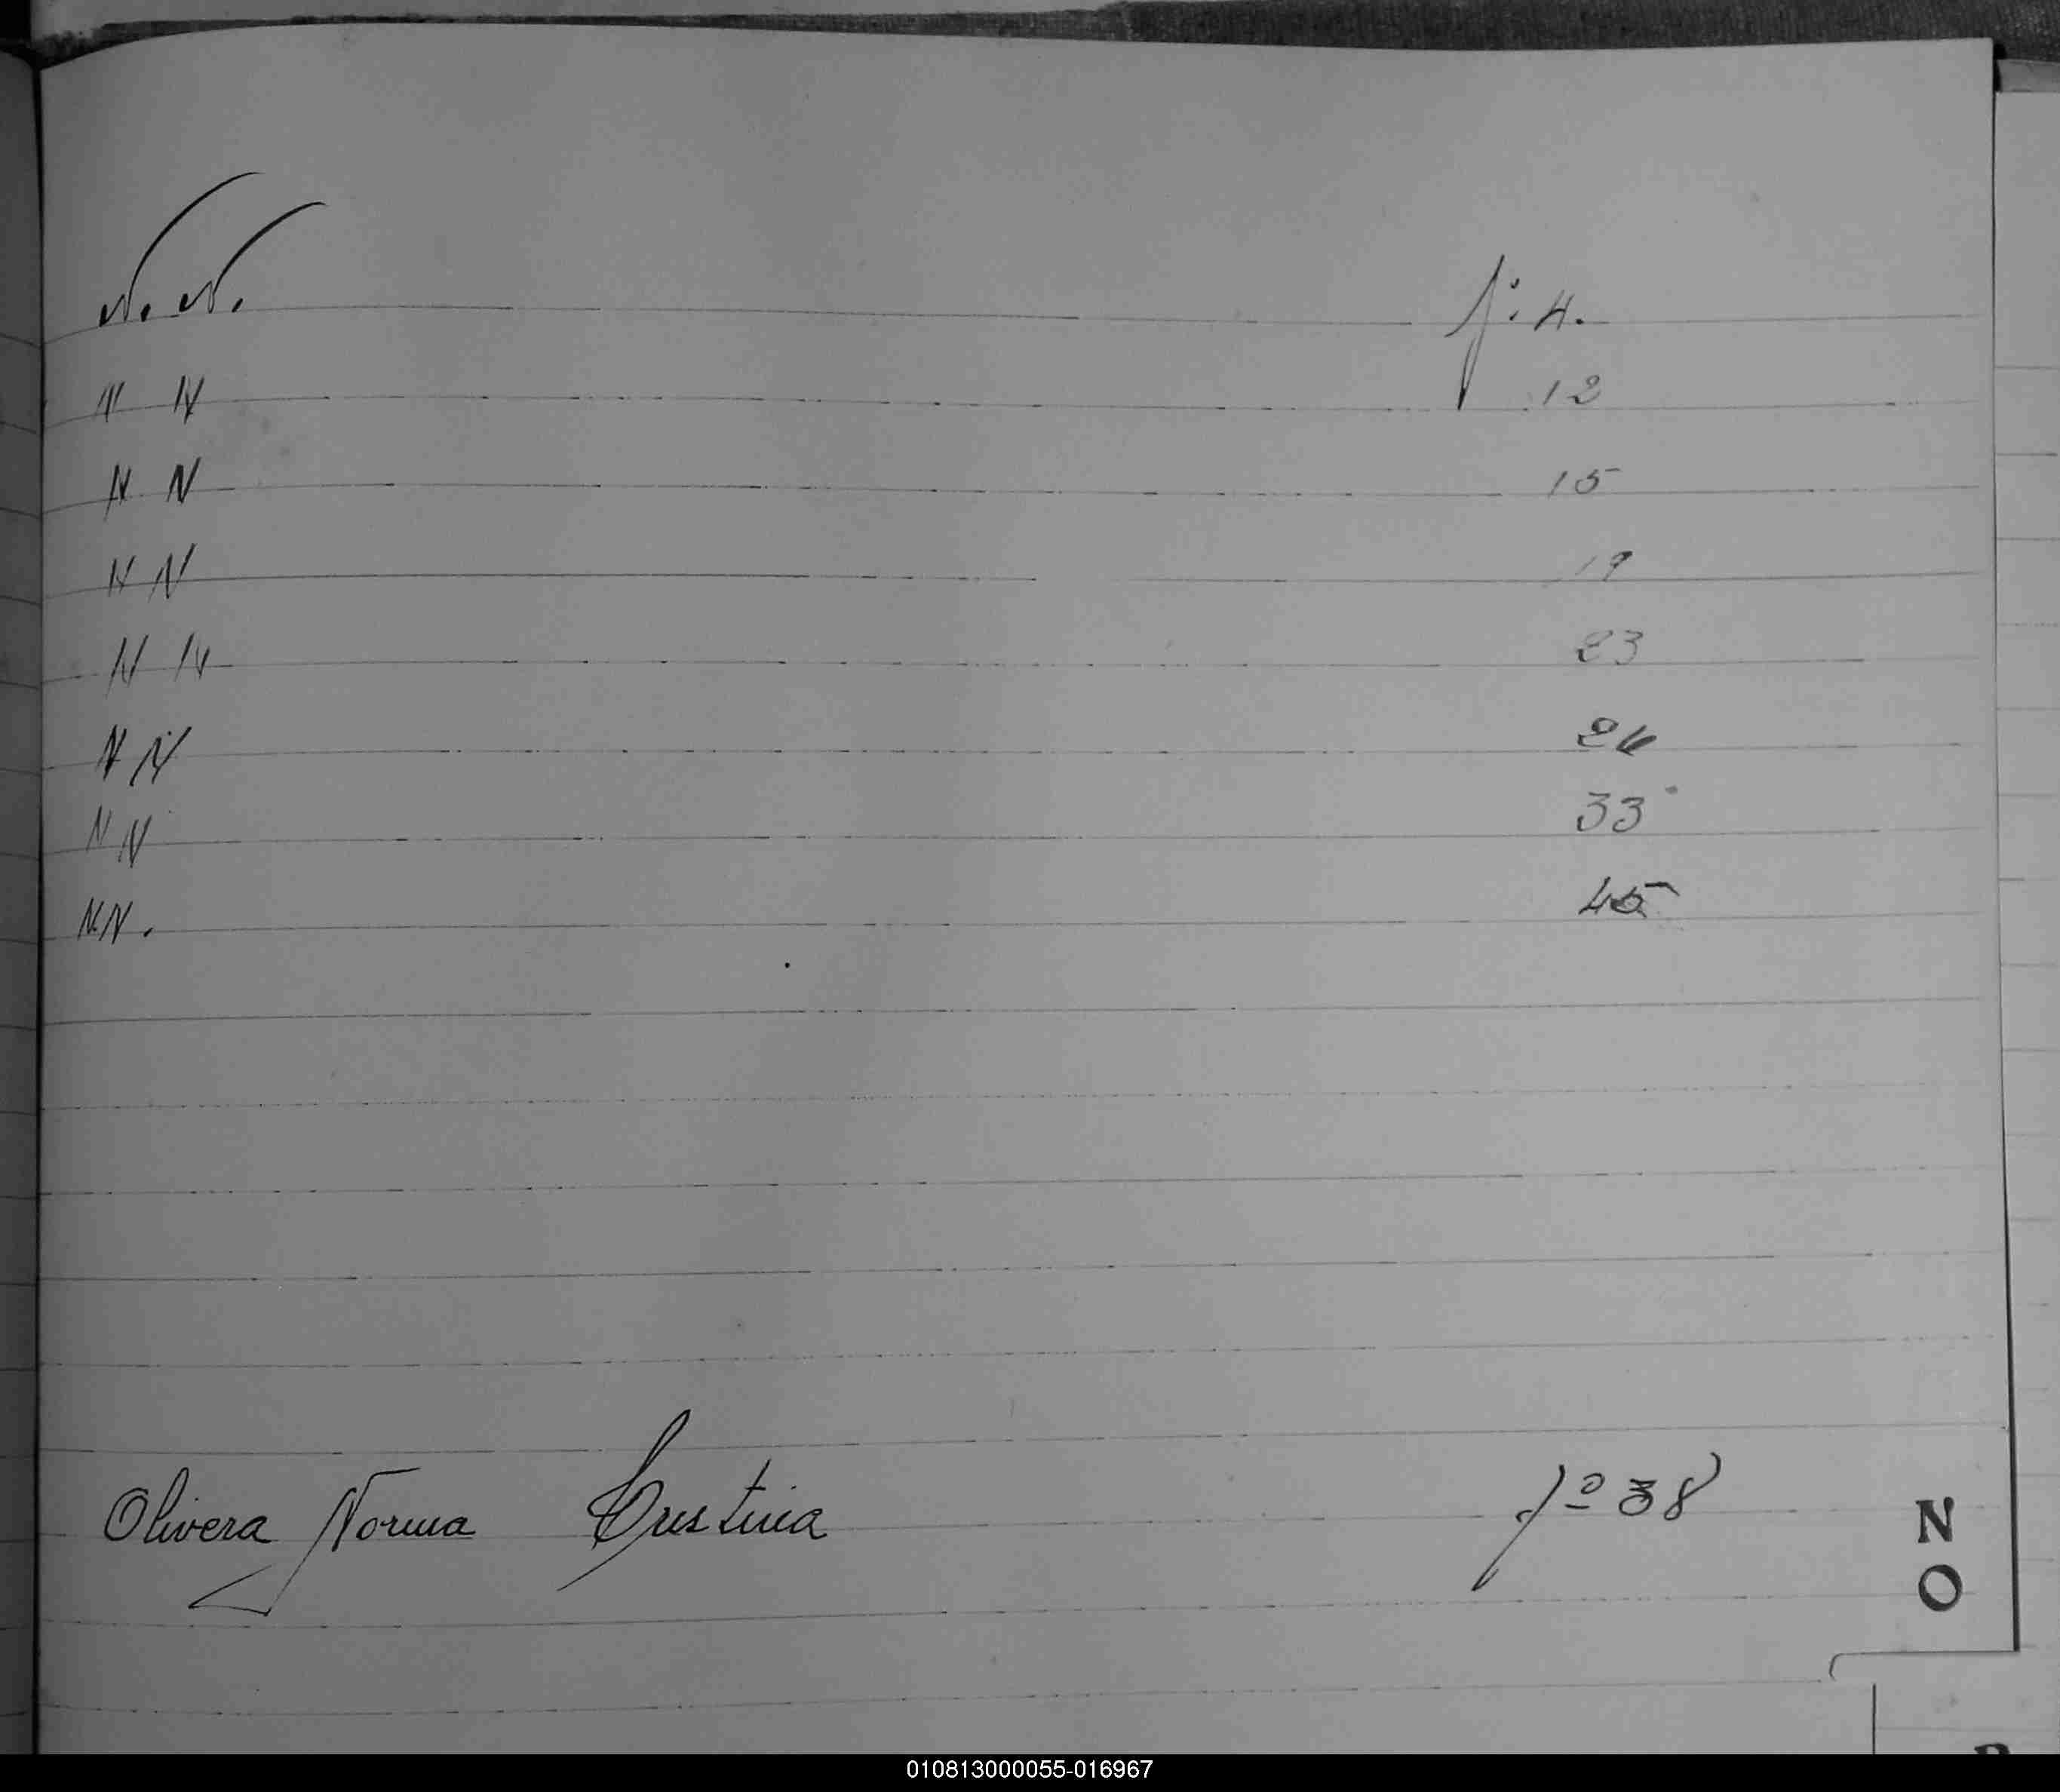 N. N. f: 4.
N N 12
N N 15
N N 19
N N 23
N N 24
N N 33
N.N. 45
Olivera Norma Cristina fº 38
N
O
010813000055-016967